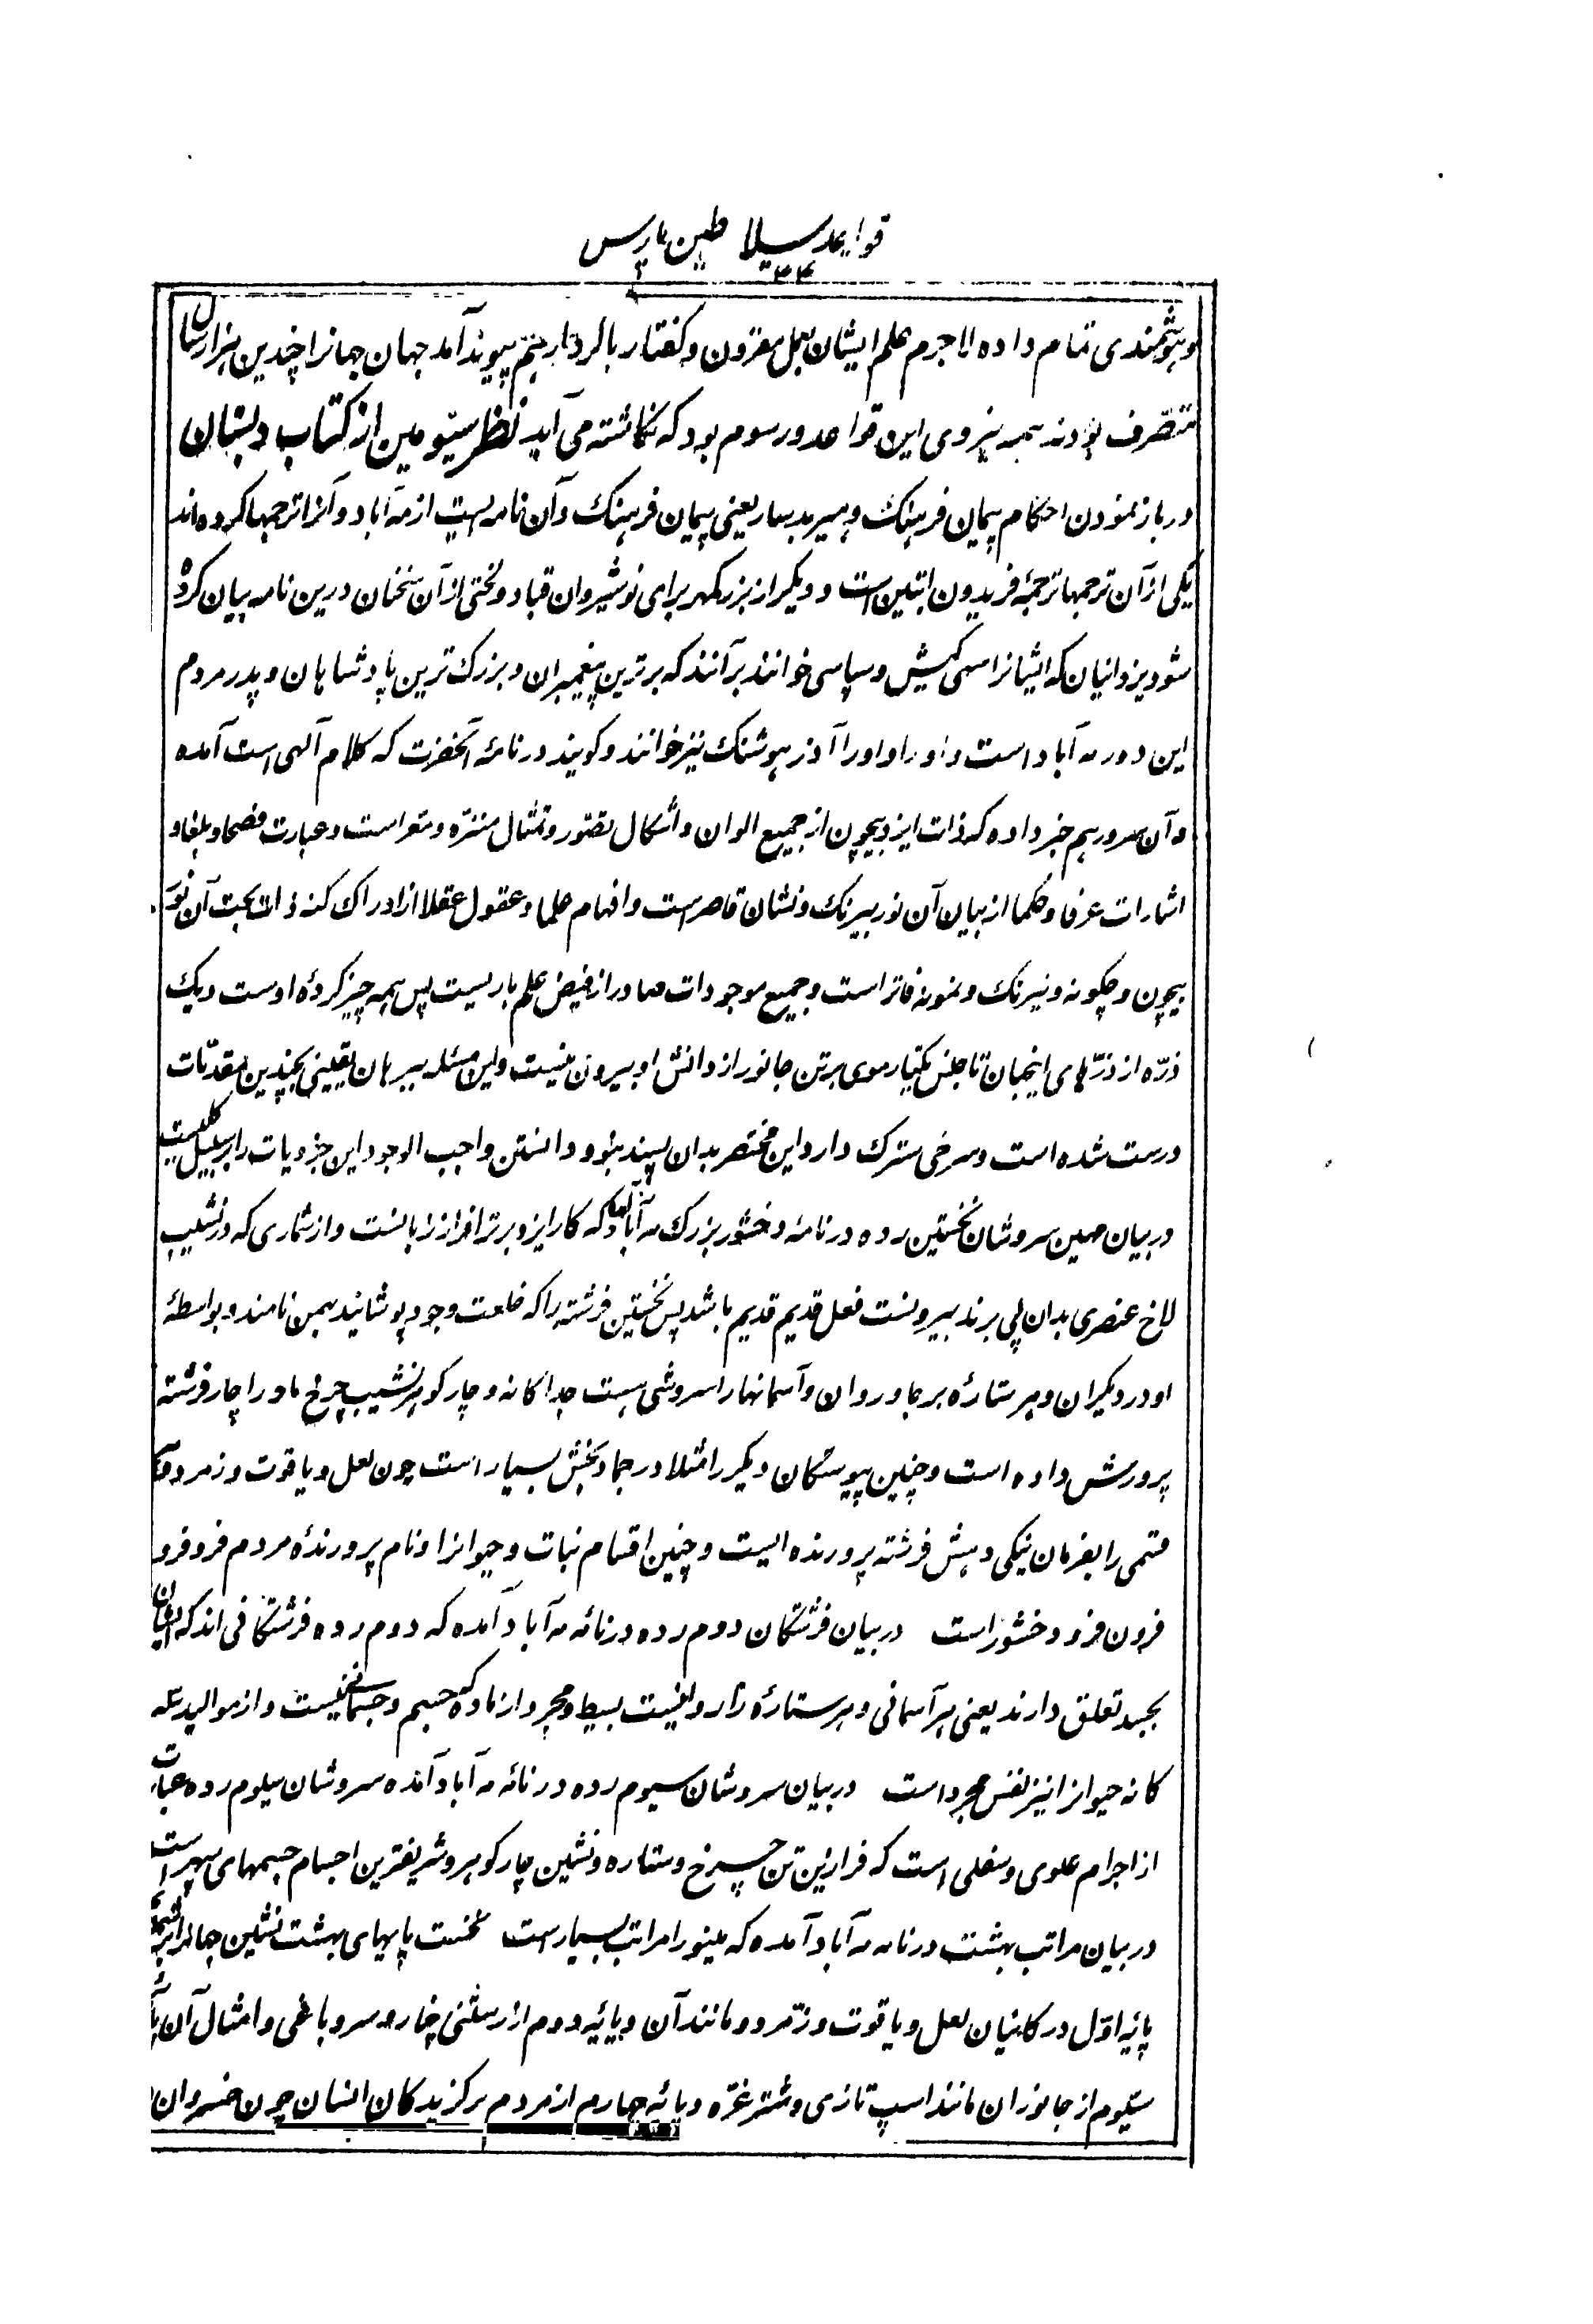 قواعد سلاطین پارس
۳۴
و هوشمندی تمام داده لاجرم علم ایشان بعمل مقرون و گفتار با کردار پیوند آمد جهان جهانرا چندین هزار سال
متصرف بودند همه نیروی این قواعد و رسوم بود که نگاشته می آید نظر سیومین از کتاب دبستان
در باز نمودن احکام پیمان فرهنگ و هیربدسار یعنی پیمان فرهنگ و آن نامه ایست از مه آباد و آنرا ترجمها کرده اند
یکی از آن ترجمها ترجمهٔ فریدون ابتین است و دیگر از بزرگمهر برای نوشیروان قباد و لختی از آن سخنان درین نامه بیان کرده
شود یزدانیان که ایشانرا سهی کیش و سپاسی خوانند برآنند که برترین پیغمبران و بزرک ترین پادشاهان و پدر مردم
این دور مه آباد است و او را آذر هوشنک نیز خوانند و کویند در نامهٔ آنحضرت که کلام آلهی است آمده
و آن سرور هم خبر داده که ذات ایزد بیچون از جمیع الوان و اشکال تصور و تمثال منزه و معراست و عبارت فصحا و بلغا و
اشارات عرفا و حکما از بیان آن نور بیرنک و نشان قاصر است و افهام علما و عقول عقلا از ادراک کنه ذات بحت آن نور
بیچون و چکونه و نیرنک و نمونه فاتر است و جمیع موجودات صادر از فیض علم باریست پس همه چیز کردهٔ اوست و یک
ذره از ذرهای اینجهان تا جنبش یکتار موی بر تن جانور از دانش او بیرون نیست و این مسئله ببرهان یقینی بچندین مقدمات
درست شده است و شرحی سترک دارد این مختصر بدان بسند بنود و دانستن واجب الوجود این جزویات را بر سبیل کلیست
در بیان مهین سروشان نخستین رده در نامهٔ وخشور بزرک مه آباد آمده که کار ایزد برتر از فراز زبانست و از شماری که در نشیب
لاخ عنصری بدان پی برند بیرونست فعل قدیم قدیم باشد پس نخستین فرشته را که خلعت وجود پوشانید بهمن نامند و بواسطهٔ
او در دیکران و هر ستارهٔ برجا و روان و آسمانها را سروشی هست جداکانه و چار کوهر نشیب چرخ ماه را چار فرشته
پرورش داده است و چنین پیوستکان دیکر را مثلا در جماد بخش بسیار است چون لعل و یاقوت و زمرد
قسمی را بفرمان نیکی دهش فرشته پرورنده ایست و چنین اقسام نبات و حیوانرا و نام پرورندهٔ مردم فروفرو
فرون فرو وخشور است در بیان فرشتکان دوم رده در نامه مه آباد آمده که دوم رده فرشتکانی اند که ایشان
بجسد تعلق دارند یعنی هر آسمانی و هر ستارهٔ را روانیست بسیط و مجرد از ماده که جسم و جسمانی نیست و از موالید ثلثه
کانه حیوانرا نیز نفس مجرد است در بیان سروشان سیوم رده در نامه مه آباد آمده سروشان سیوم رده عبارت
از اجرام علوی و سفلی است که فرازین تن چرخ و ستاره و نشین چار کوهر و شریفترین اجسام جسمهای سپهر است
در بیان مراتب بهشت در نامه مه آباد آمده که مینو را مراتب بسیار است نخست پایهای بهشت نشین جهانرا
پایهٔ اول در کانیان لعل و یاقوت و زمرد و مانند آن و پایهٔ دوم از رستنی چنار و سرو باغی و امثال آن
سیوم از جانوران مانند اسپ تازی و شتر غره و پایهٔ چهارم از مردم برکزیدکان انسان چون خسروان